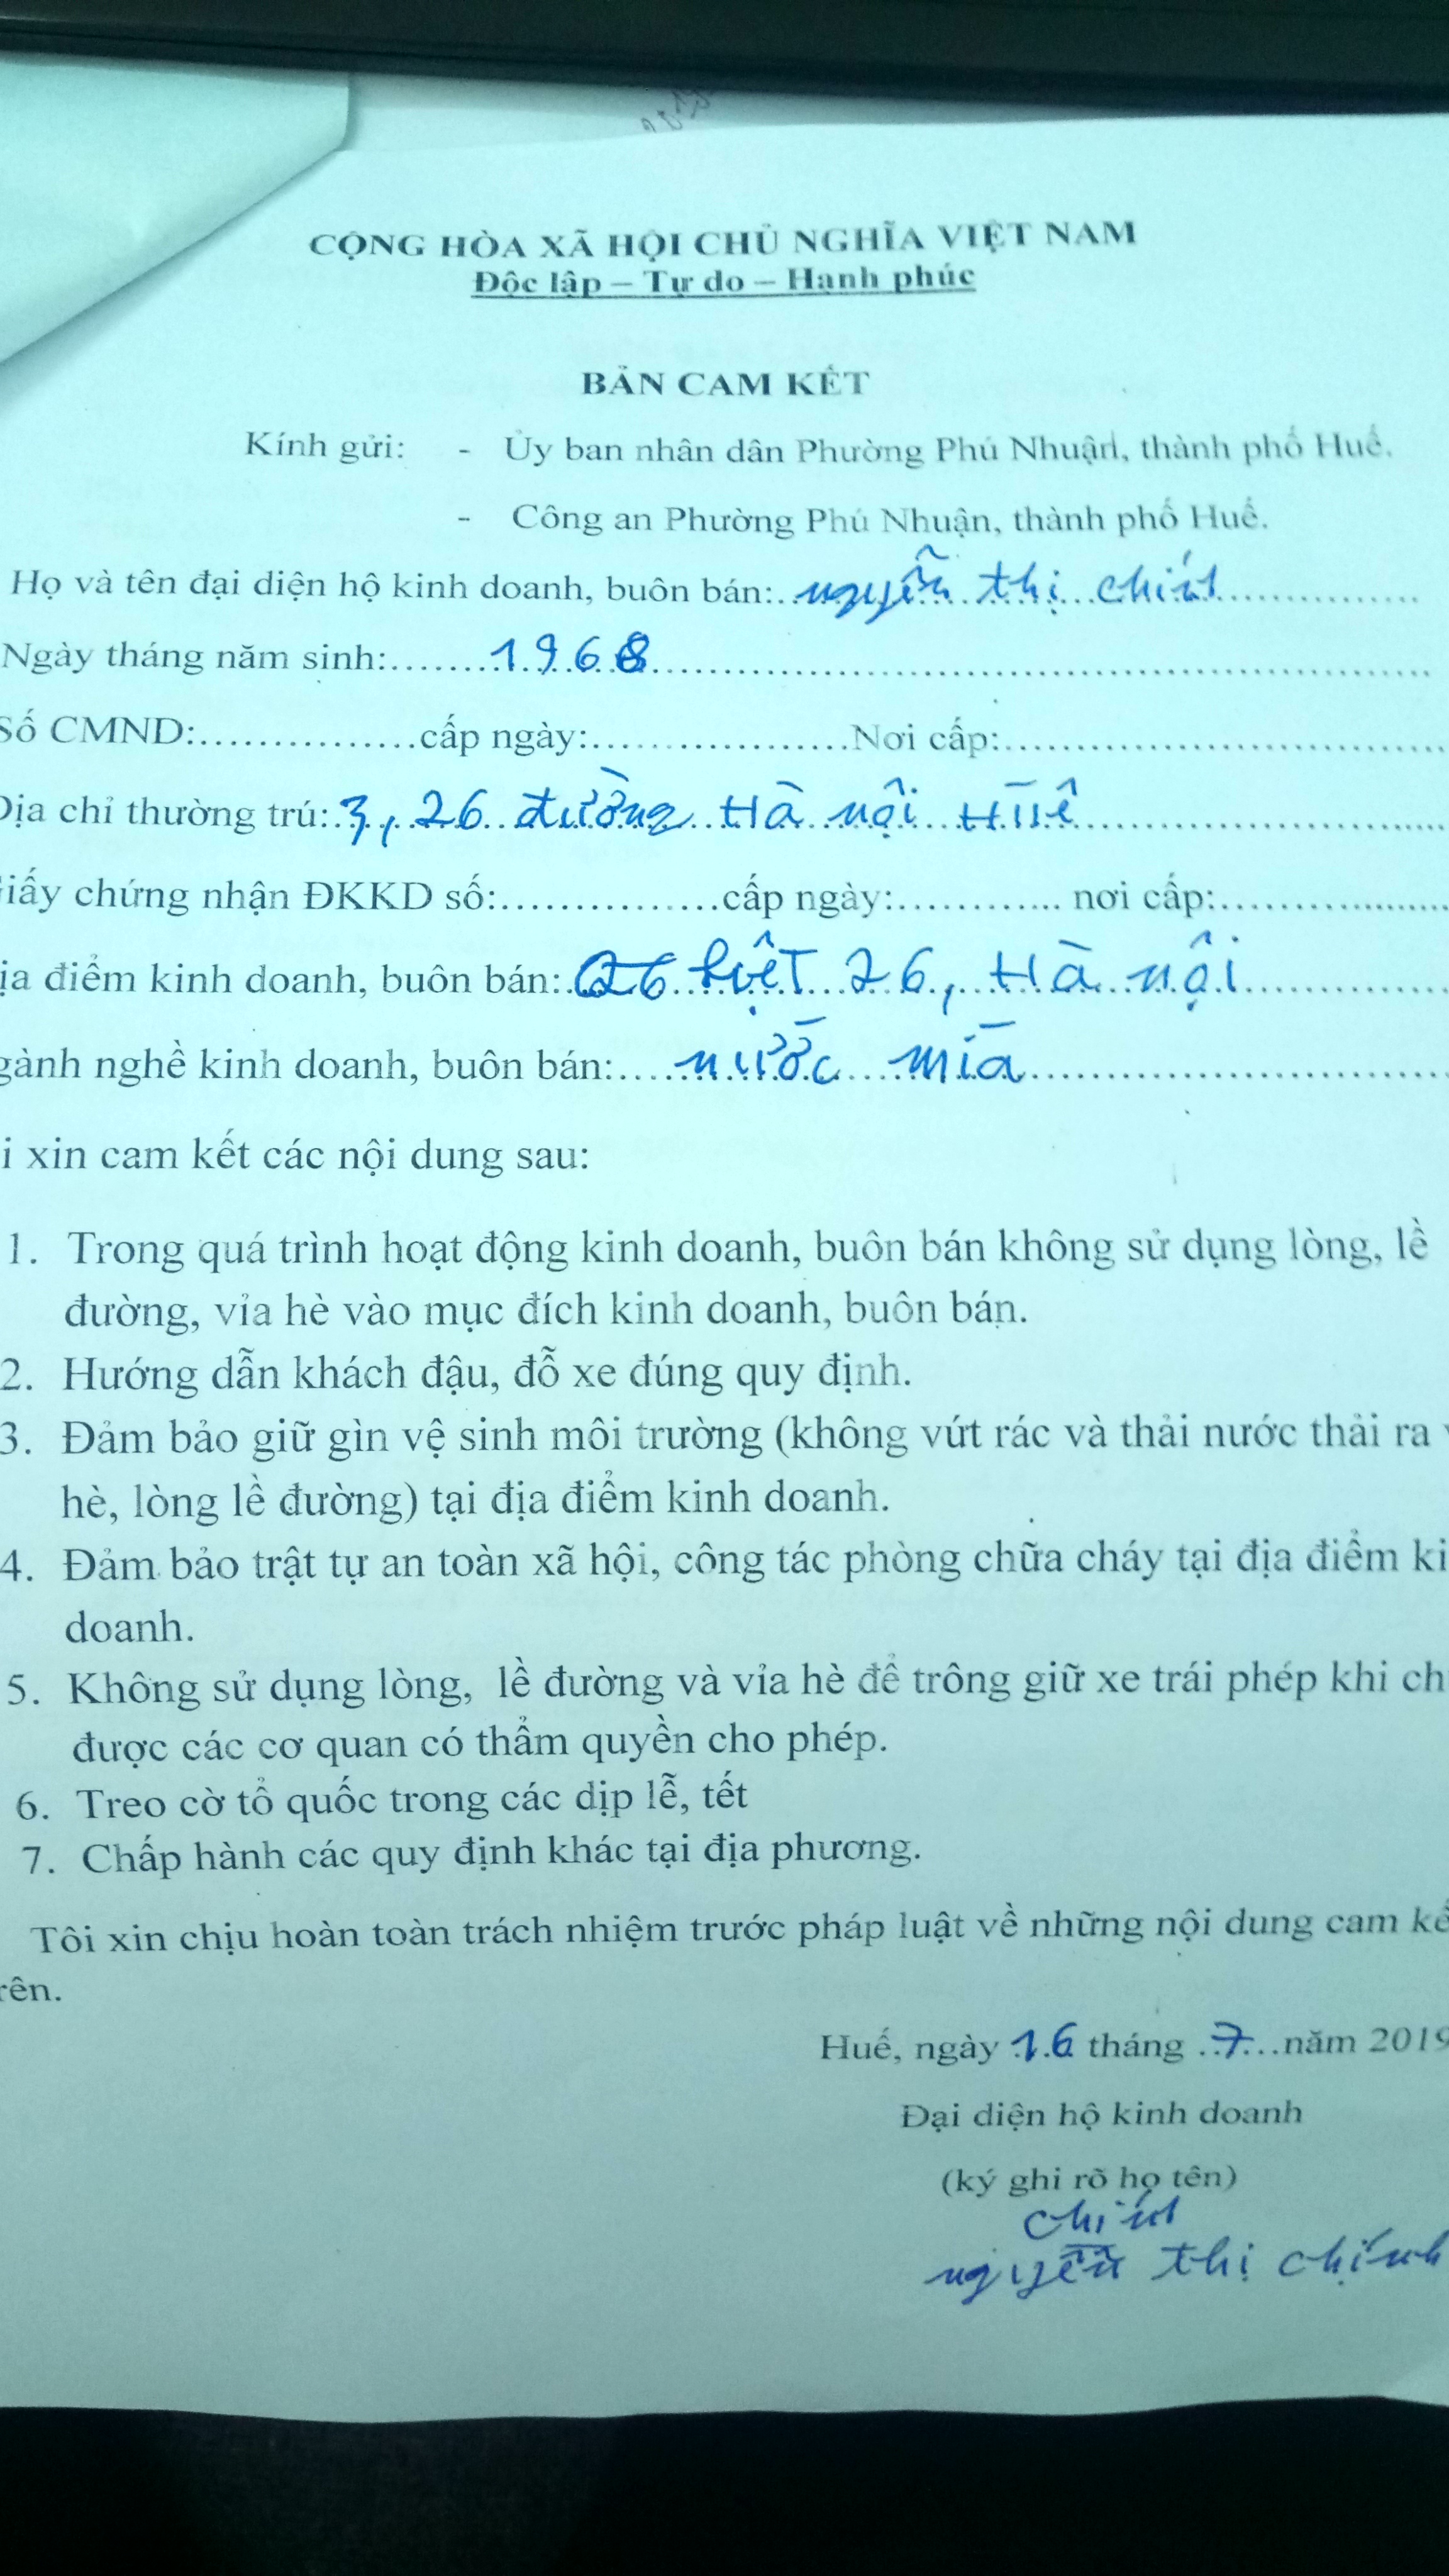 CỘNG HÒA XÃ HỘI CHỦ NGHĨA VIỆT NAM
Độc lập – Tự do – Hạnh phúc
BẢN CAM KẾT
Kính gửi: - Ủy ban nhân dân Phường Phú Nhuận, thành phố Huế.
- Công an Phường Phú Nhuận, thành phố Huế.
Họ và tên đại diện hộ kinh doanh, buôn bán: nguyễn thị chính
Ngày tháng năm sinh: 1968
Số CMND: cấp ngày: Nơi cấp:
Địa chỉ thường trú: 3, 26 đường Hà nội Huê
iấy chứng nhận ĐKKD số: cấp ngày: nơi cấp:
ịa điểm kinh doanh, buôn bán: kiệt 26, Hà nội
gành nghề kinh doanh, buôn bán: nước mía
i xin cam kết các nội dung sau:
1. Trong quá trình hoạt động kinh doanh, buôn bán không sử dụng lòng, lề
đường, vỉa hè vào mục đích kinh doanh, buôn bán.
2. Hướng dẫn khách đậu, đỗ xe đúng quy định.
3. Đảm bảo giữ gìn vệ sinh môi trường (không vứt rác và thải nước thải ra
hè, lòng lề đường) tại địa điểm kinh doanh.
4. Đảm bảo trật tự an toàn xã hội, công tác phòng chữa cháy tại địa điểm ki
doanh.
5. Không sử dụng lòng, lề đường và vỉa hè để trông giữ xe trái phép khi ch
được các cơ quan có thẩm quyền cho phép.
6. Treo cờ tổ quốc trong các dịp lễ, tết
7. Chấp hành các quy định khác tại địa phương.
Tôi xin chịu hoàn toàn trách nhiệm trước pháp luật về những nội dung cam kế
rên.
Huế, ngày 16 tháng 7 năm 2019
Đại diện hộ kinh doanh
(ký ghi rõ họ tên)
chính
nguyễn thị chính